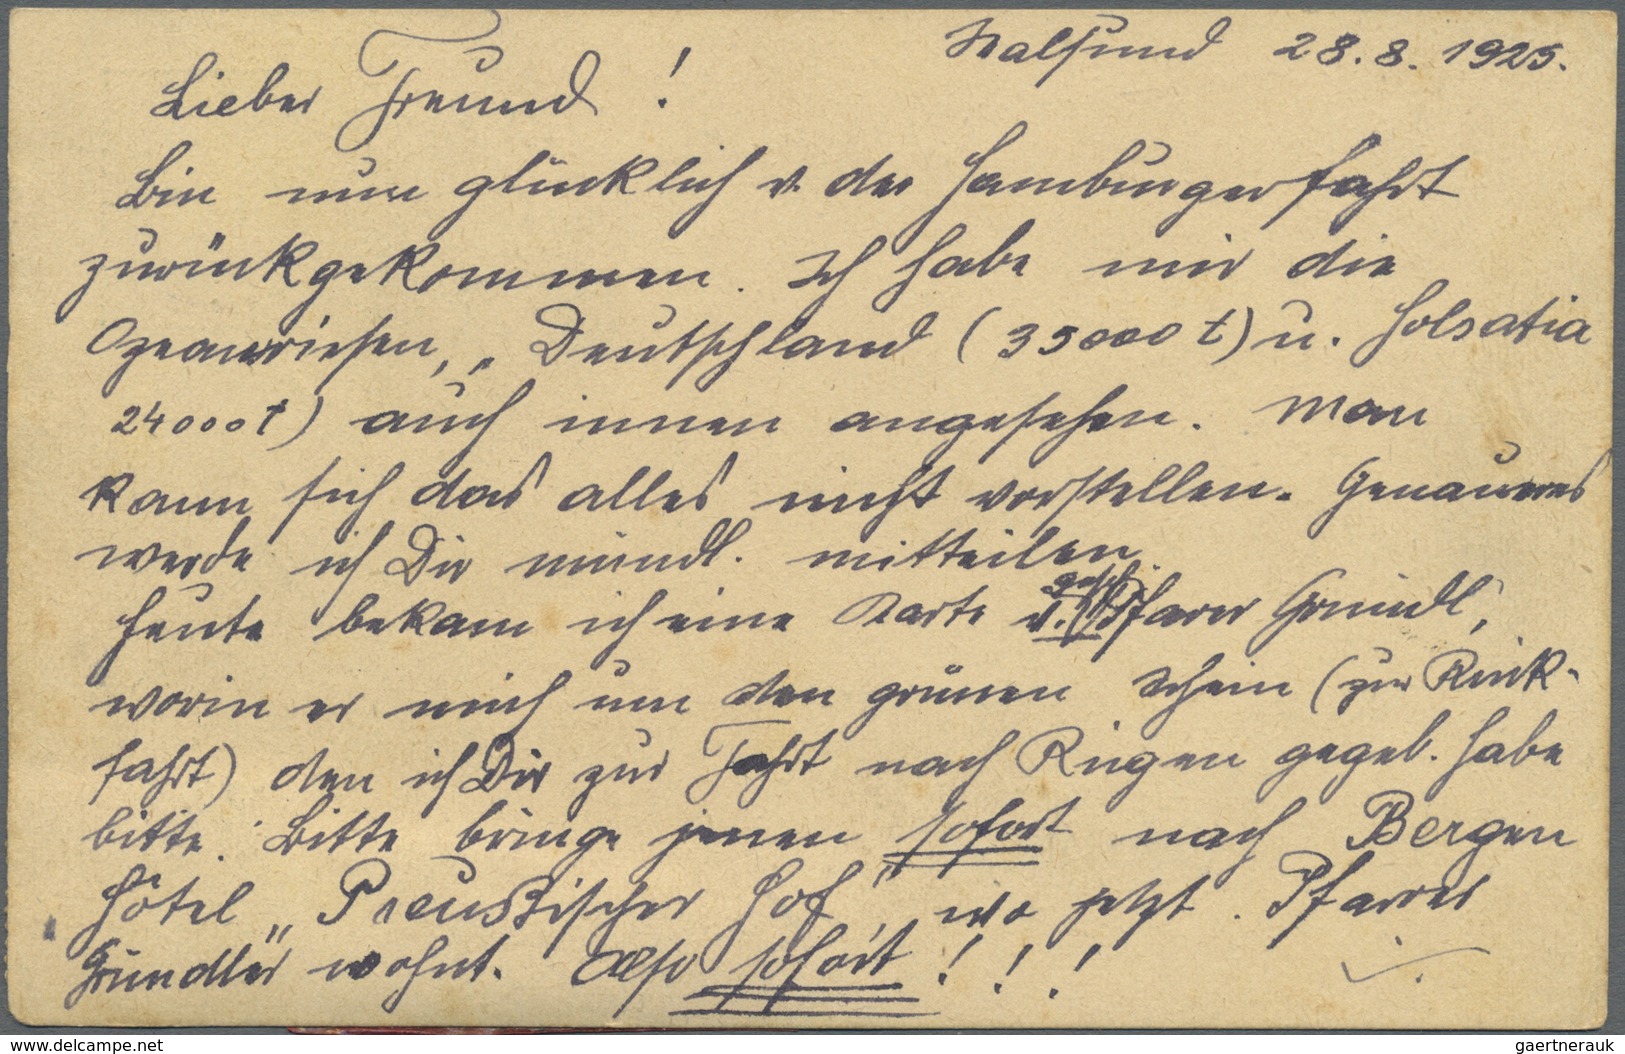 Stralsund 28.8.1925.
Lieber Freund!
Bin nun glücklich v. der Hamburgerfahrt
zurückgekommen. Ich habe mir die
Ozeanriesen, „Deutschland (35000 t) u. Holsatia
24000 t) auch innen angesehen. Man
kann sich das alles nicht vorstellen. Genaueres
werde ich Dir mündl. mitteilen.
Heute bekam ich eine Karte v. Pfarrer Gründl,
worin er mich um den grünen Schein (zur Rück-
fahrt) den ich Dir zur Fahrt nach Rügen gegeb. habe
bitte. Bitte bringe jenen sofort nach Bergen
Hôtel „Preussischer Hof“, wo jetzt Pfarrer
Gründler wohnt. Also sofort!!!
delcampe.net
gaertnerauk